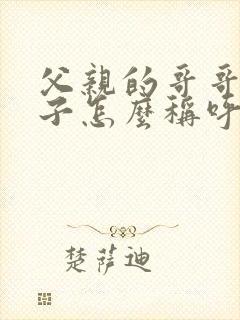 父親的哥哥
子怎麼稱呼
楚薩迪